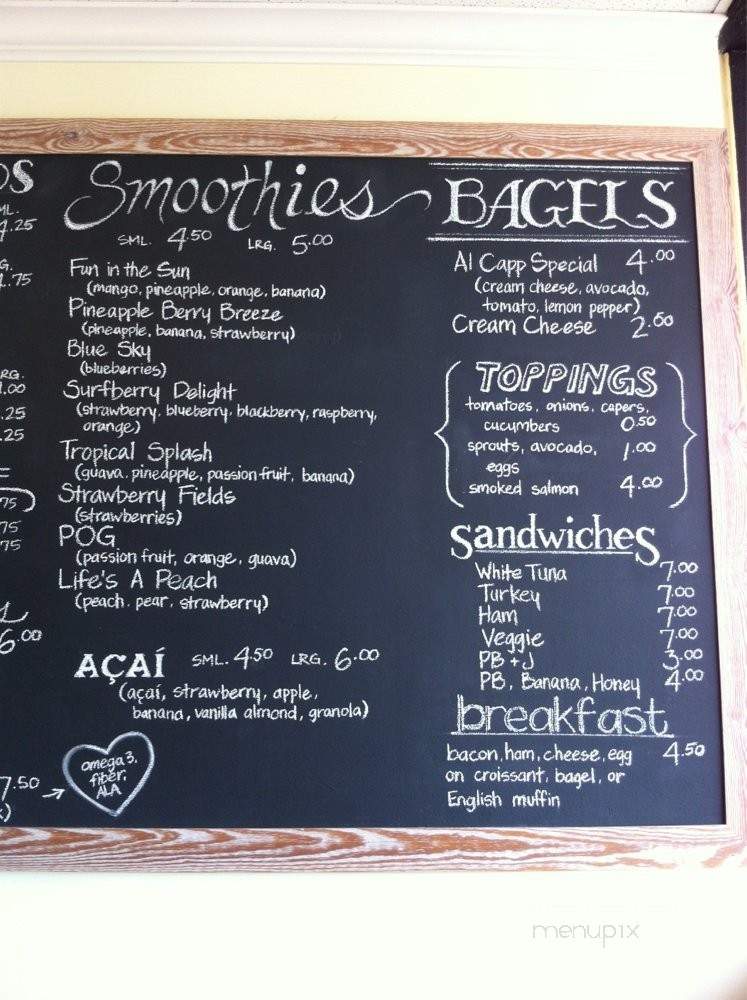 OS
ML.
4.25
G.
.75
RG.
1.00
.25
.25
75
75
75
6.00
7.50
Smoothies
SML. 4.50 LRG. 5.00
Fun in the Sun
(mango, pineapple, orange, banana)
Pineapple Berry Breeze
(pineapple, banana, strawberry)
Blue Sky
(blueberries)
Surfberry Delight
(strawberry, blueberry, blackberry, raspberry,
orange)
Tropical Splash
(guava, pineapple, passion fruit, banana)
Strawberry Fields
(strawberries)
POG
(passion fruit, orange, guava)
Life's A Peach
(peach, pear, strawberry)
AÇAÍ SML. 4.50 LRG. 6.00
(açaí, strawberry, apple,
banana, vanilla almond, granola)
omega 3,
fiber,
ALA
BAGELS
Al Capp Special 4.00
(cream cheese, avocado,
tomato, lemon pepper)
Cream Cheese 2.50
TOPPINGS
tomatoes, onions, capers,
cucumbers 0.50
sprouts, avocado, 1.00
eggs
smoked salmon 4.00
Sandwiches
White Tuna 7.00
Turkey 7.00
Ham 7.00
Veggie 7.00
PB + J 3.00
PB, Banana, Honey 4.00
breakfast
bacon, ham, cheese, egg 4.50
on croissant, bagel, or
English muffin
menupix